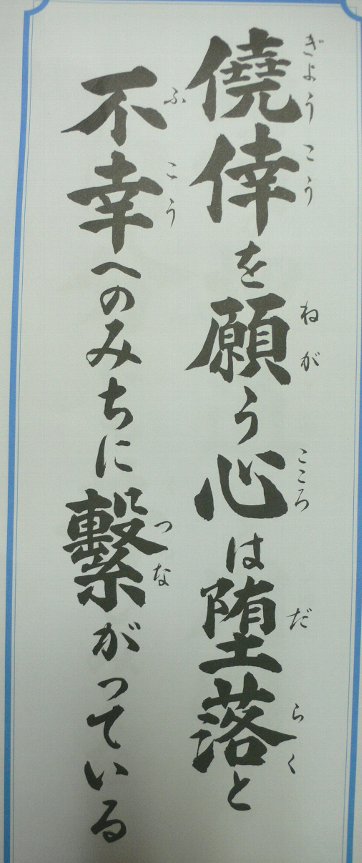 僥倖を願う心は堕落と
ぎょうこう ねが こころ だ らく
不幸へのみちに繫がっている
ふこう つな